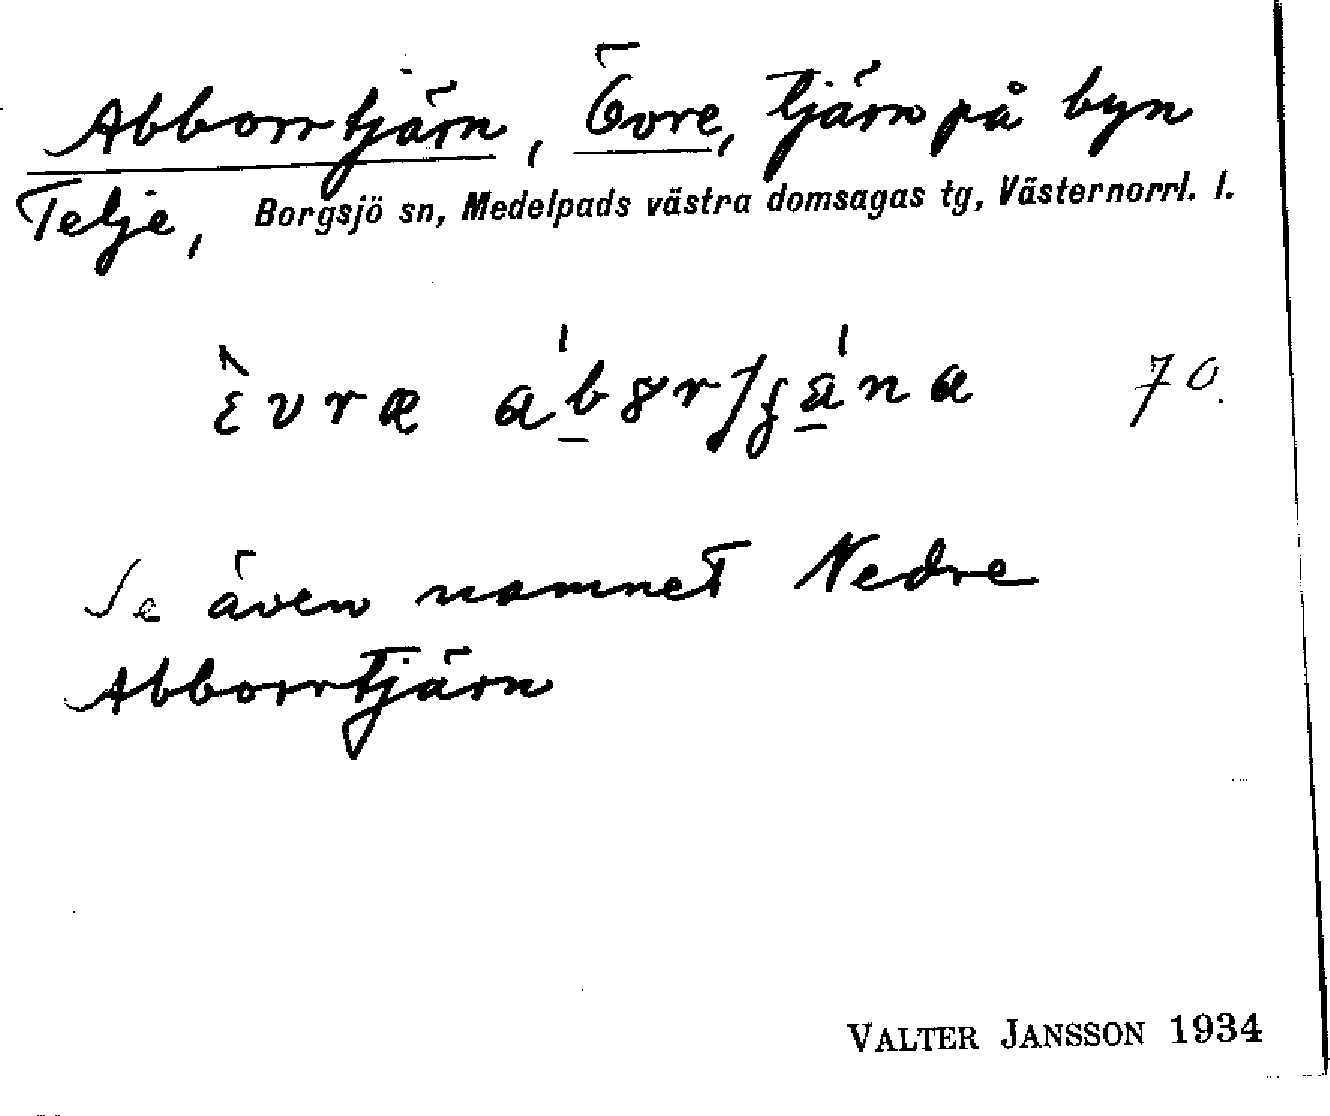 Abborrtjärn, Övre, tjärn på byn
Telje, Borgsjö sn, Medelpads västra domsagas tg, Västernorrl. l.
70.
Se även namnet Nedre
Abborrtjärn
VALTER JANSSON 1934